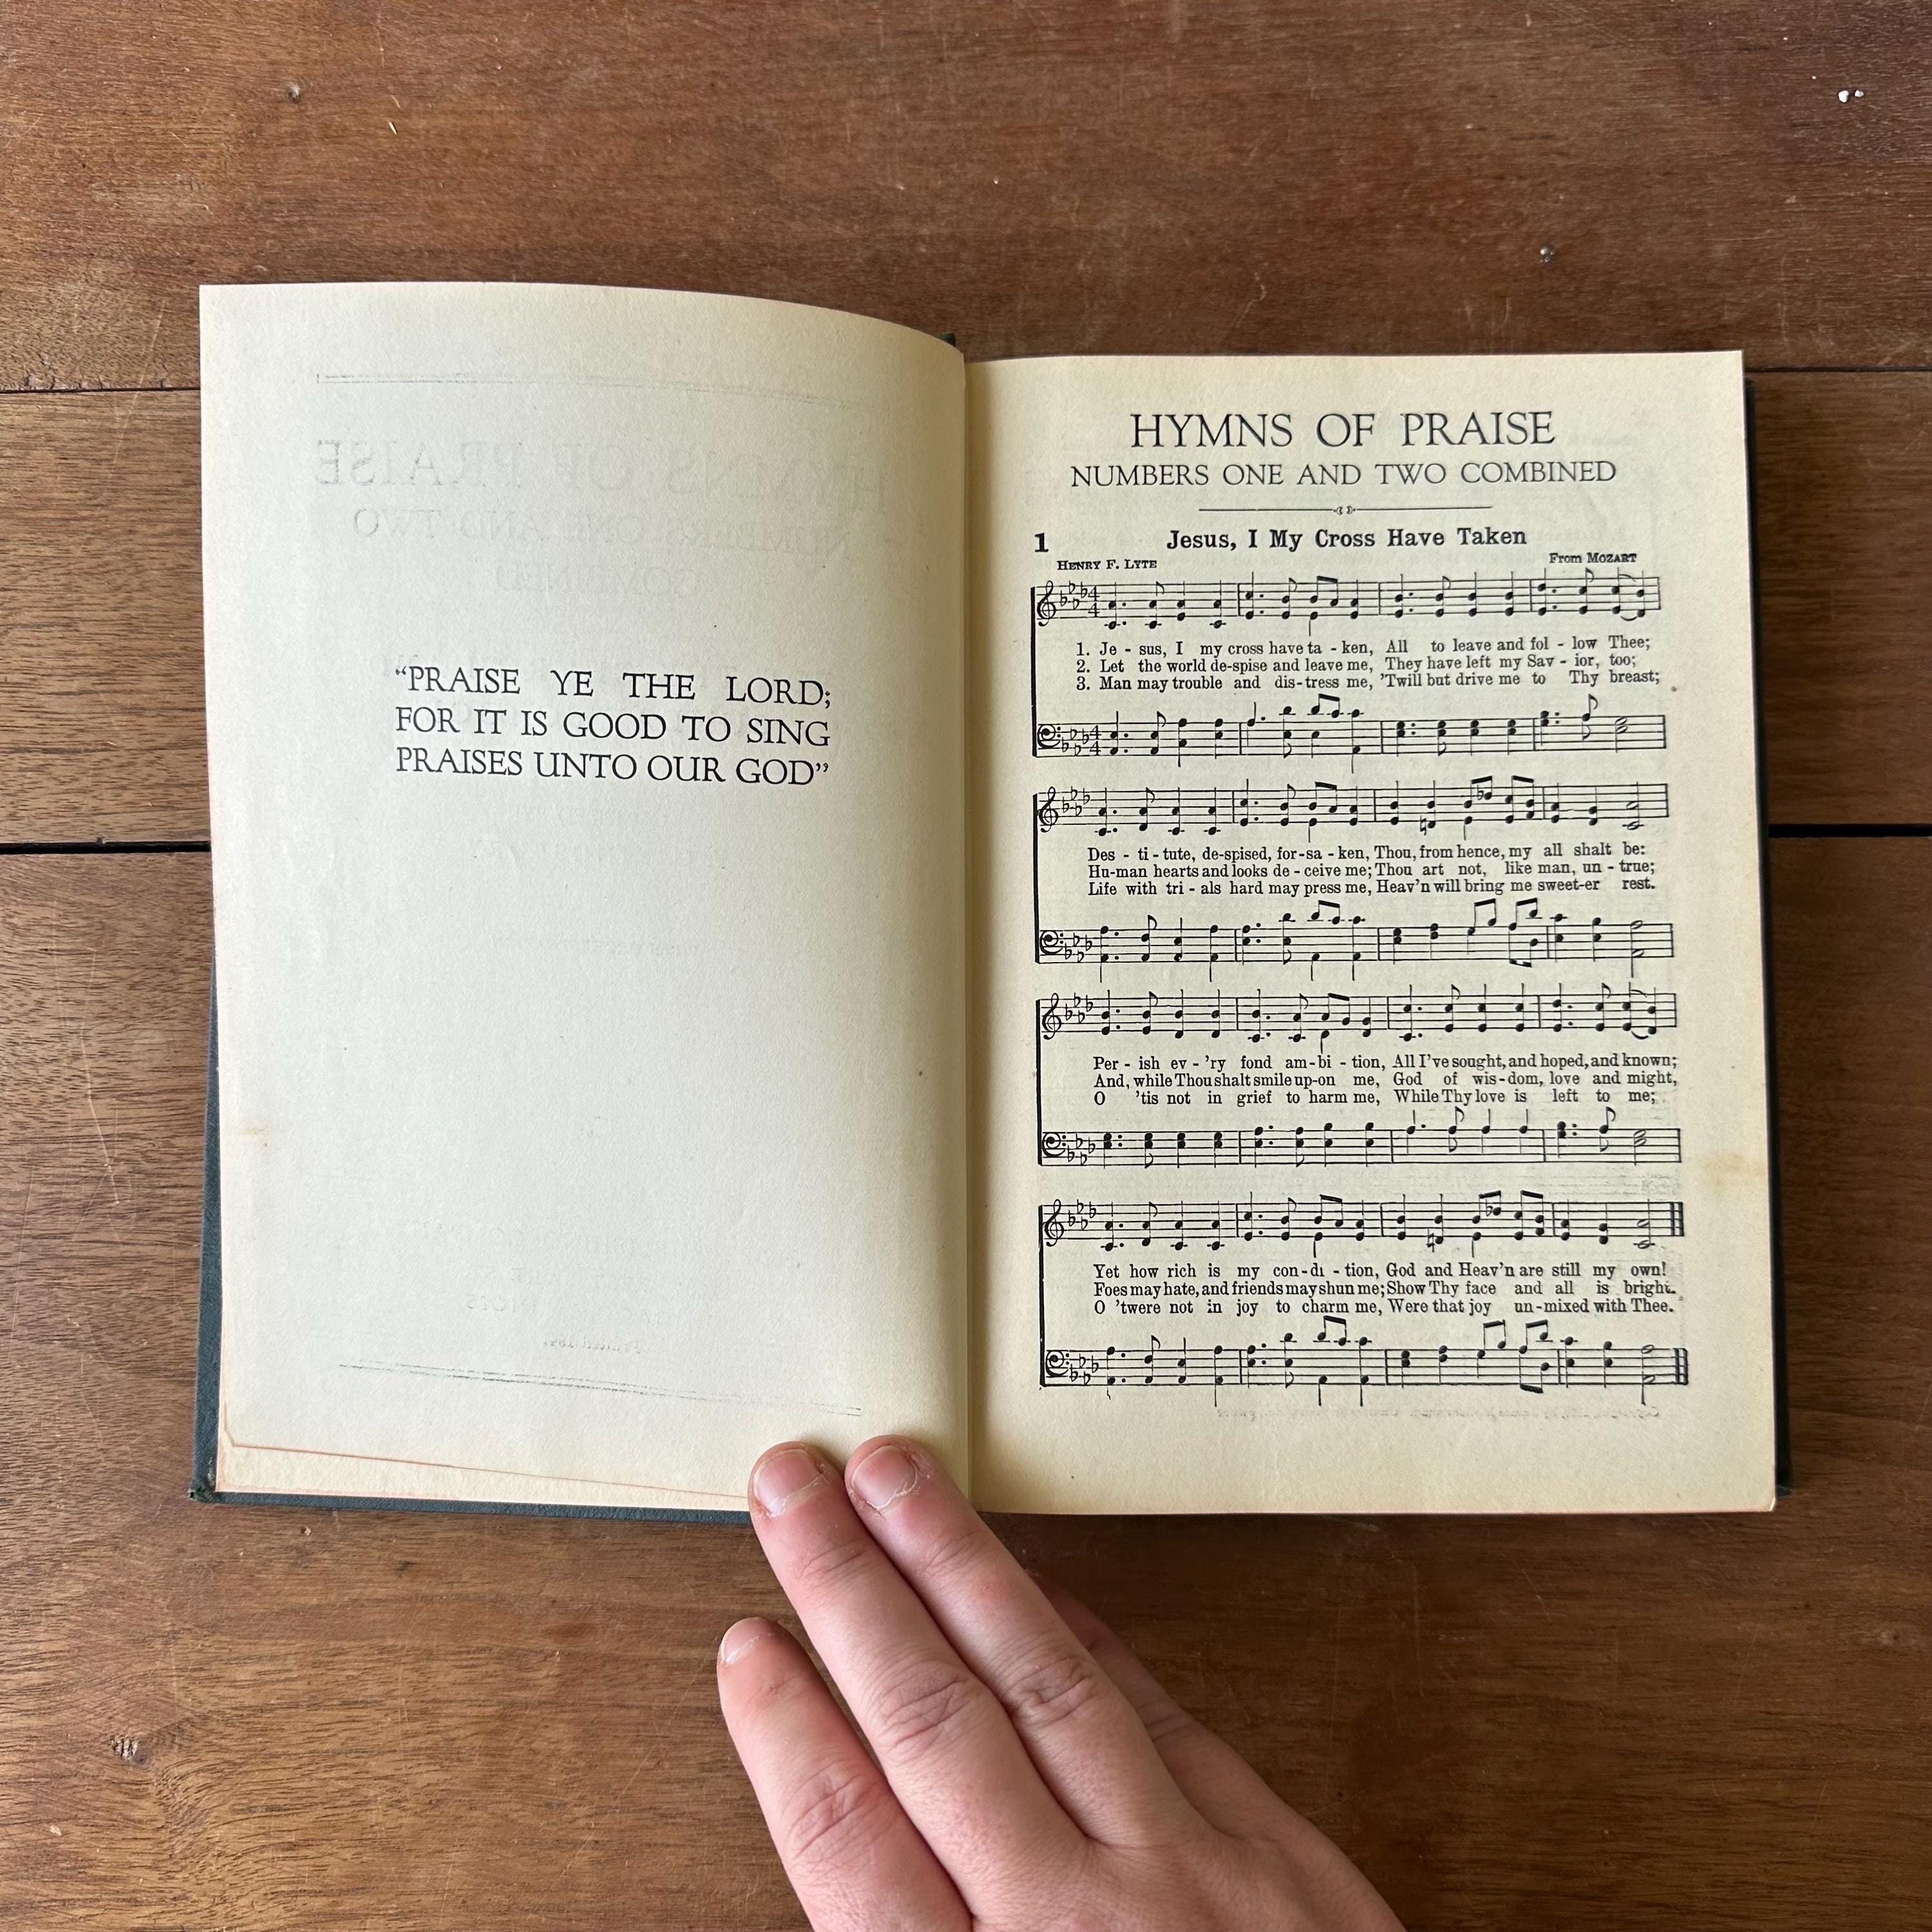 “PRAISE YE THE LORD;
FOR IT IS GOOD TO SING
PRAISES UNTO OUR GOD”
HYMNS OF PRAISE
NUMBERS ONE AND TWO COMBINED
1 Jesus, I My Cross Have Taken
HENRY F. LYTE From MOZART
1. Je - sus, I my cross have ta - ken, All to leave and fol - low Thee;
2. Let the world de-spise and leave me, They have left my Sav - ior, too;
3. Man may trouble and dis-tress me, ’Twill but drive me to Thy breast;
Des - ti - tute, de-spised, for-sa - ken, Thou, from hence, my all shalt be:
Hu-man hearts and looks de - ceive me; Thou art not, like man, un - true;
Life with tri - als hard may press me, Heav’n will bring me sweet-er rest.
Per - ish ev - ’ry fond am-bi - tion, All I’ve sought, and hoped, and known;
And, while Thou shalt smile up-on me, God of wis-dom, love and might,
O ’tis not in grief to harm me, While Thy love is left to me;
Yet how rich is my con-di - tion, God and Heav’n are still my own!
Foes may hate, and friends may shun me; Show Thy face and all is bright.
O ’twere not in joy to charm me, Were that joy un-mixed with Thee.